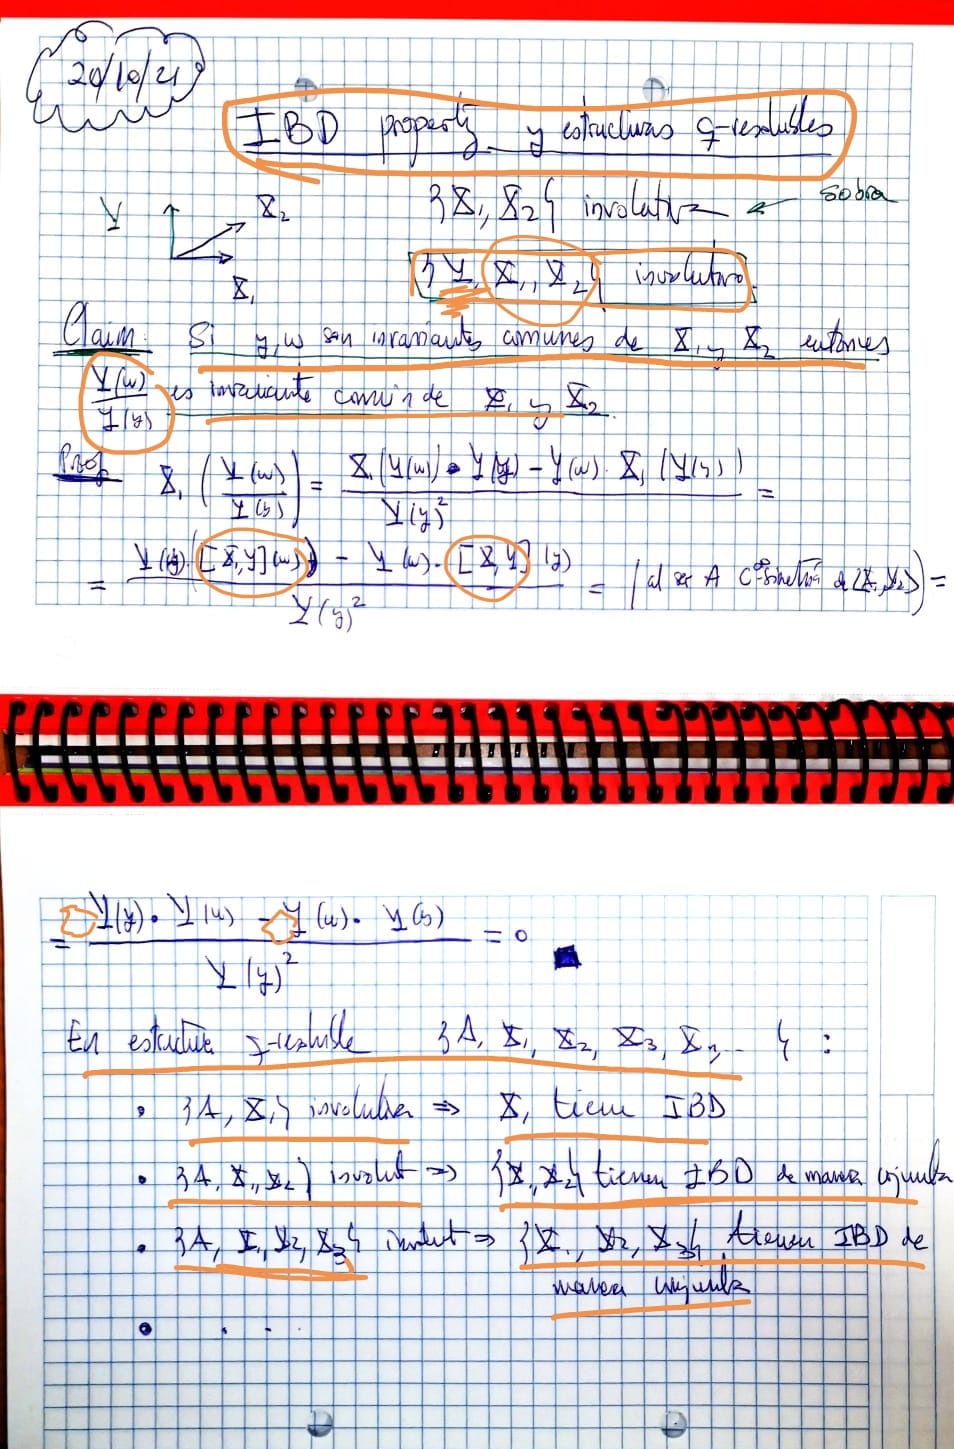 20/10/21
IBD property y estructuras q-resolubles
{X₁, X₂} involutiva ← sobra
Y X₂
X₁
{Y, X₁, X₂} involutivo
Claim: Si y, w son invariantes comunes de X₁ y X₂ entonces
Y(w)/Y(y) es invariante común de X₁ y X₂.
Proof X₁(Y(w)/Y(y)) = X₁(Y(w))·Y(y) − Y(w)·X₁(Y(y)) / Y(y)² =
= Y(y)·([X₁,Y](w)) − Y(w)·[X₁,Y](y) / Y(y)² = (al ser A C∞-simetría de {X₁, X₂}) =
= Y(y)·Y(w) − Y(w)·Y(y) / Y(y)² = 0 ■
En estructura q-resoluble {A, X₁, X₂, X₃, X₄, ... } :
• {A, X₁} involutiva ⇒ X₁ tiene IBD
• {A, X₁, X₂} involut ⇒ {X₁, X₂} tienen IBD de manera conjunta
• {A, X₁, X₂, X₃} involut ⇒ {X₁, X₂, X₃} tienen IBD de
manera conjunta
• . . .